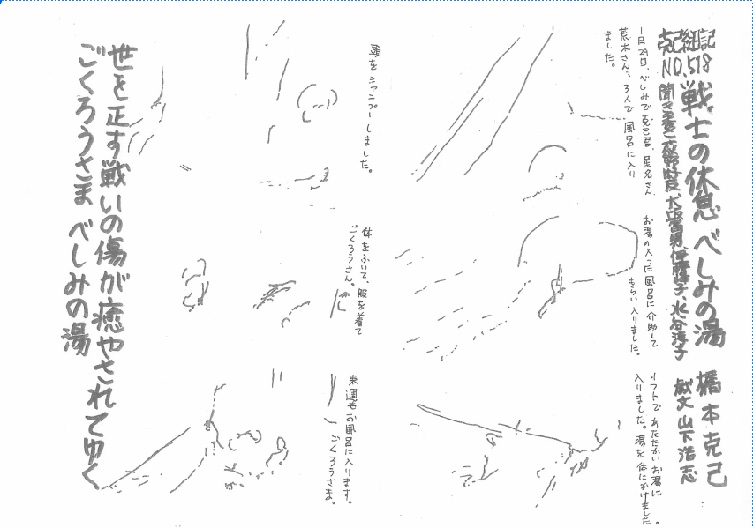 克己絵日記
NO.518
戦士の休息 べしみの湯
橋本克己
献文 山下浩志
1月29日、べしみで克己君、
荒木さん、3人で、風呂に入り
ました。
お湯の入った風呂に介助して
もらい入りました。
リフトであたたかいお湯に
入りました。湯を体にかけました
頭をシャンプーしました。
体をふいて、服を着て
ごくろうさん。
来週もお風呂に入ります。
ごくろうさま。
世を正す戦いの傷が癒やされてゆく
ごくろうさま べしみの湯